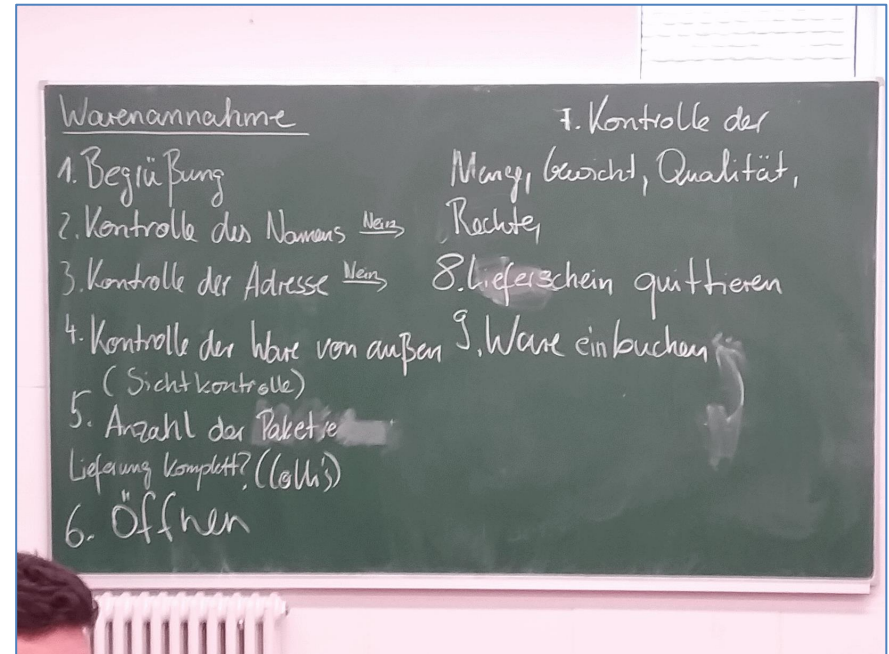 Warenannahme
1. Begrüßung
2. Kontrolle des Namens Nein
3. Kontrolle der Adresse Nein
4. Kontrolle der Ware von außen
(Sichtkontrolle)
5. Anzahl der Pakete
Lieferung komplett? (Colli's)
6. Öffnen
7. Kontrolle der
Menge, Gewicht, Qualität,
Rechte,
8. Lieferschein quittieren
9. Ware einbuchen